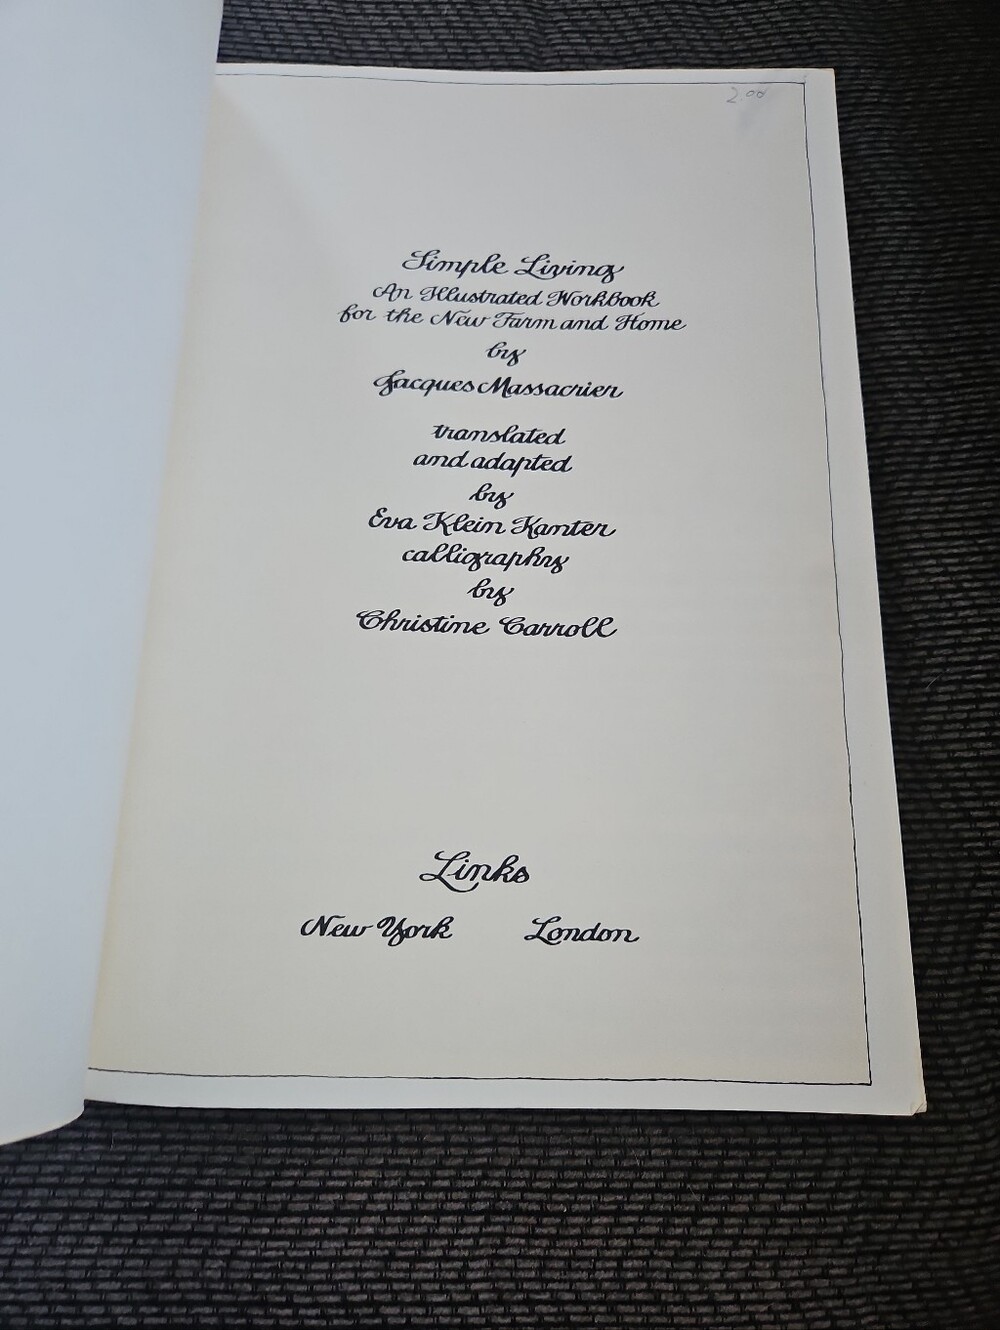 2.00
Simple Living
An Illustrated Workbook
for the New Farm and Home
by
Jacques Massacrier
translated
and adapted
by
Eva Klein Kanter
calligraphy
by
Christine Carroll
Links
New York London